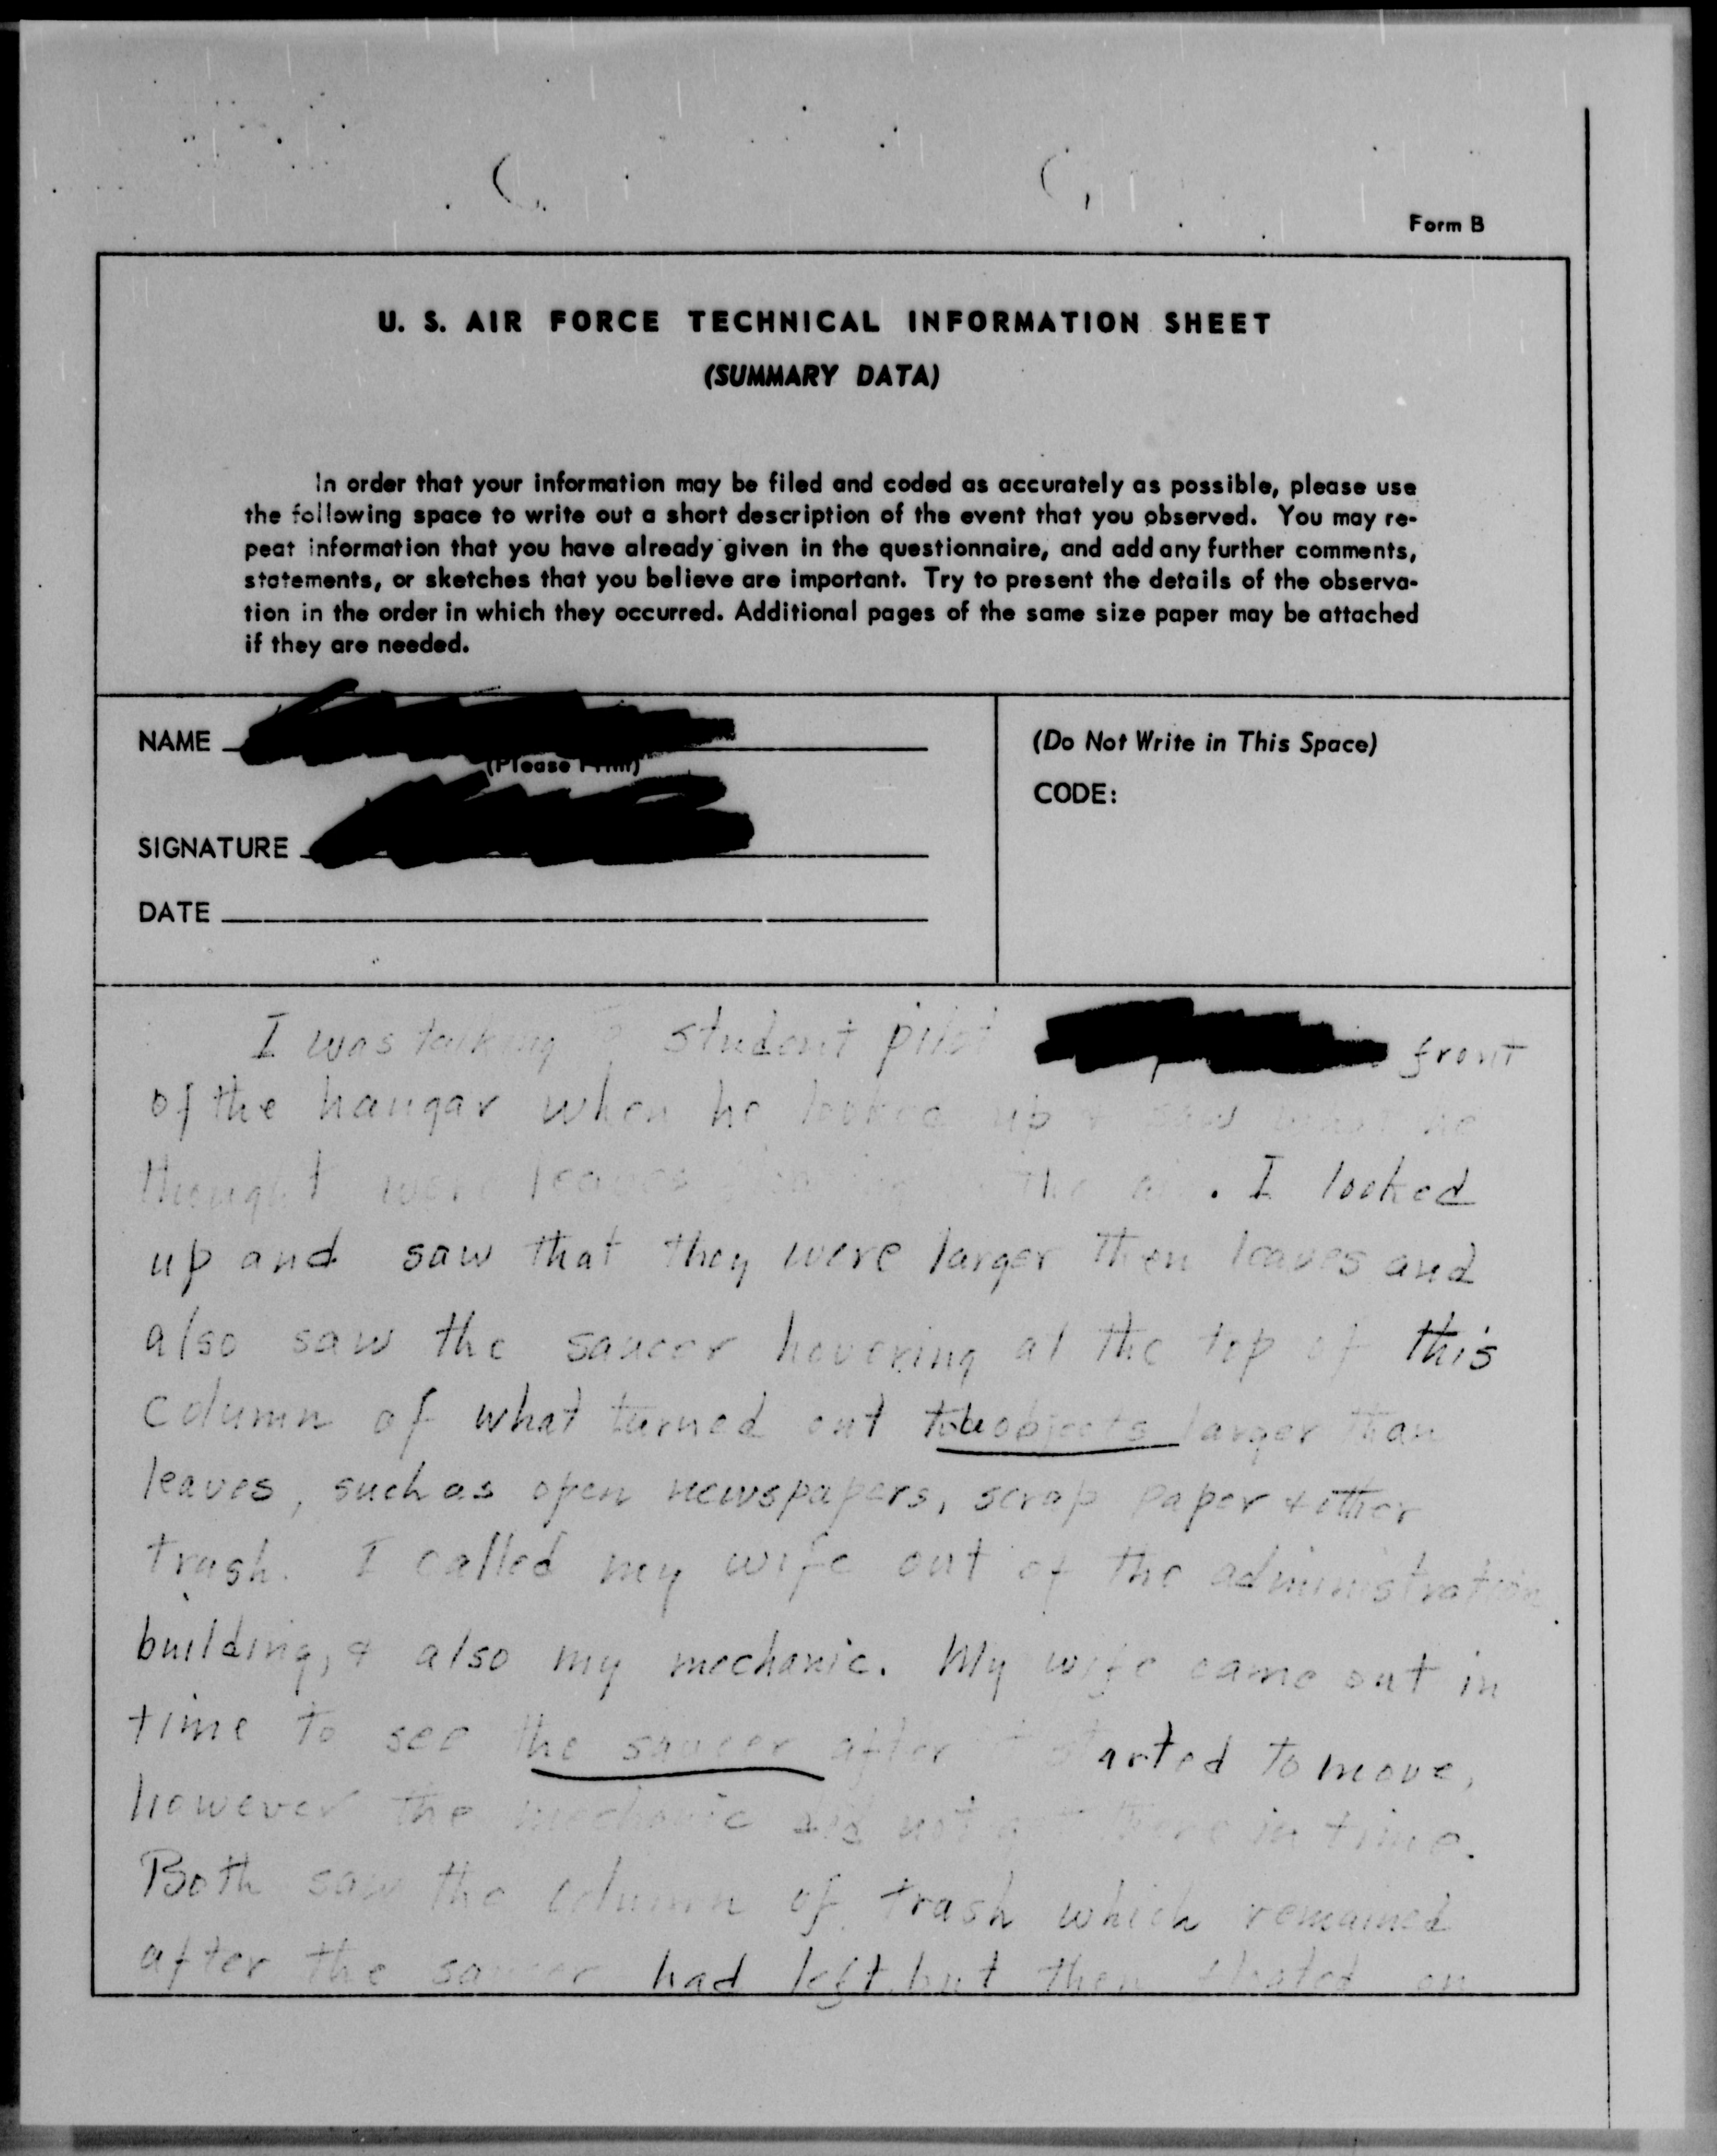 Form B
U. S. AIR FORCE TECHNICAL INFORMATION SHEET
(SUMMARY DATA)
In order that your information may be filed and coded as accurately as possible, please use
the following space to write out a short description of the event that you observed. You may re-
peat information that you have already given in the questionnaire, and add any further comments,
statements, or sketches that you believe are important. Try to present the details of the observa-
tion in the order in which they occurred. Additional pages of the same size paper may be attached
if they are needed.
NAME
(Please Print)
SIGNATURE
DATE
(Do Not Write in This Space)
CODE:
I was talking student pilot front
of the hangar when he looked up & saw what he
thought were leaves the air. I looked
up and saw that they were larger then leaves and
also saw the saucer hovering at the top of this
column of what turned out to be objects larger than
leaves, such as open newspapers, scrap paper & other
trash. I called my wife out of the administration
building, & also my mechanic. My wife came out in
time to see the saucer after started to move,
however the mechanic did not there in time.
Both saw the column of trash which remained
after the saucer had left but then floated on